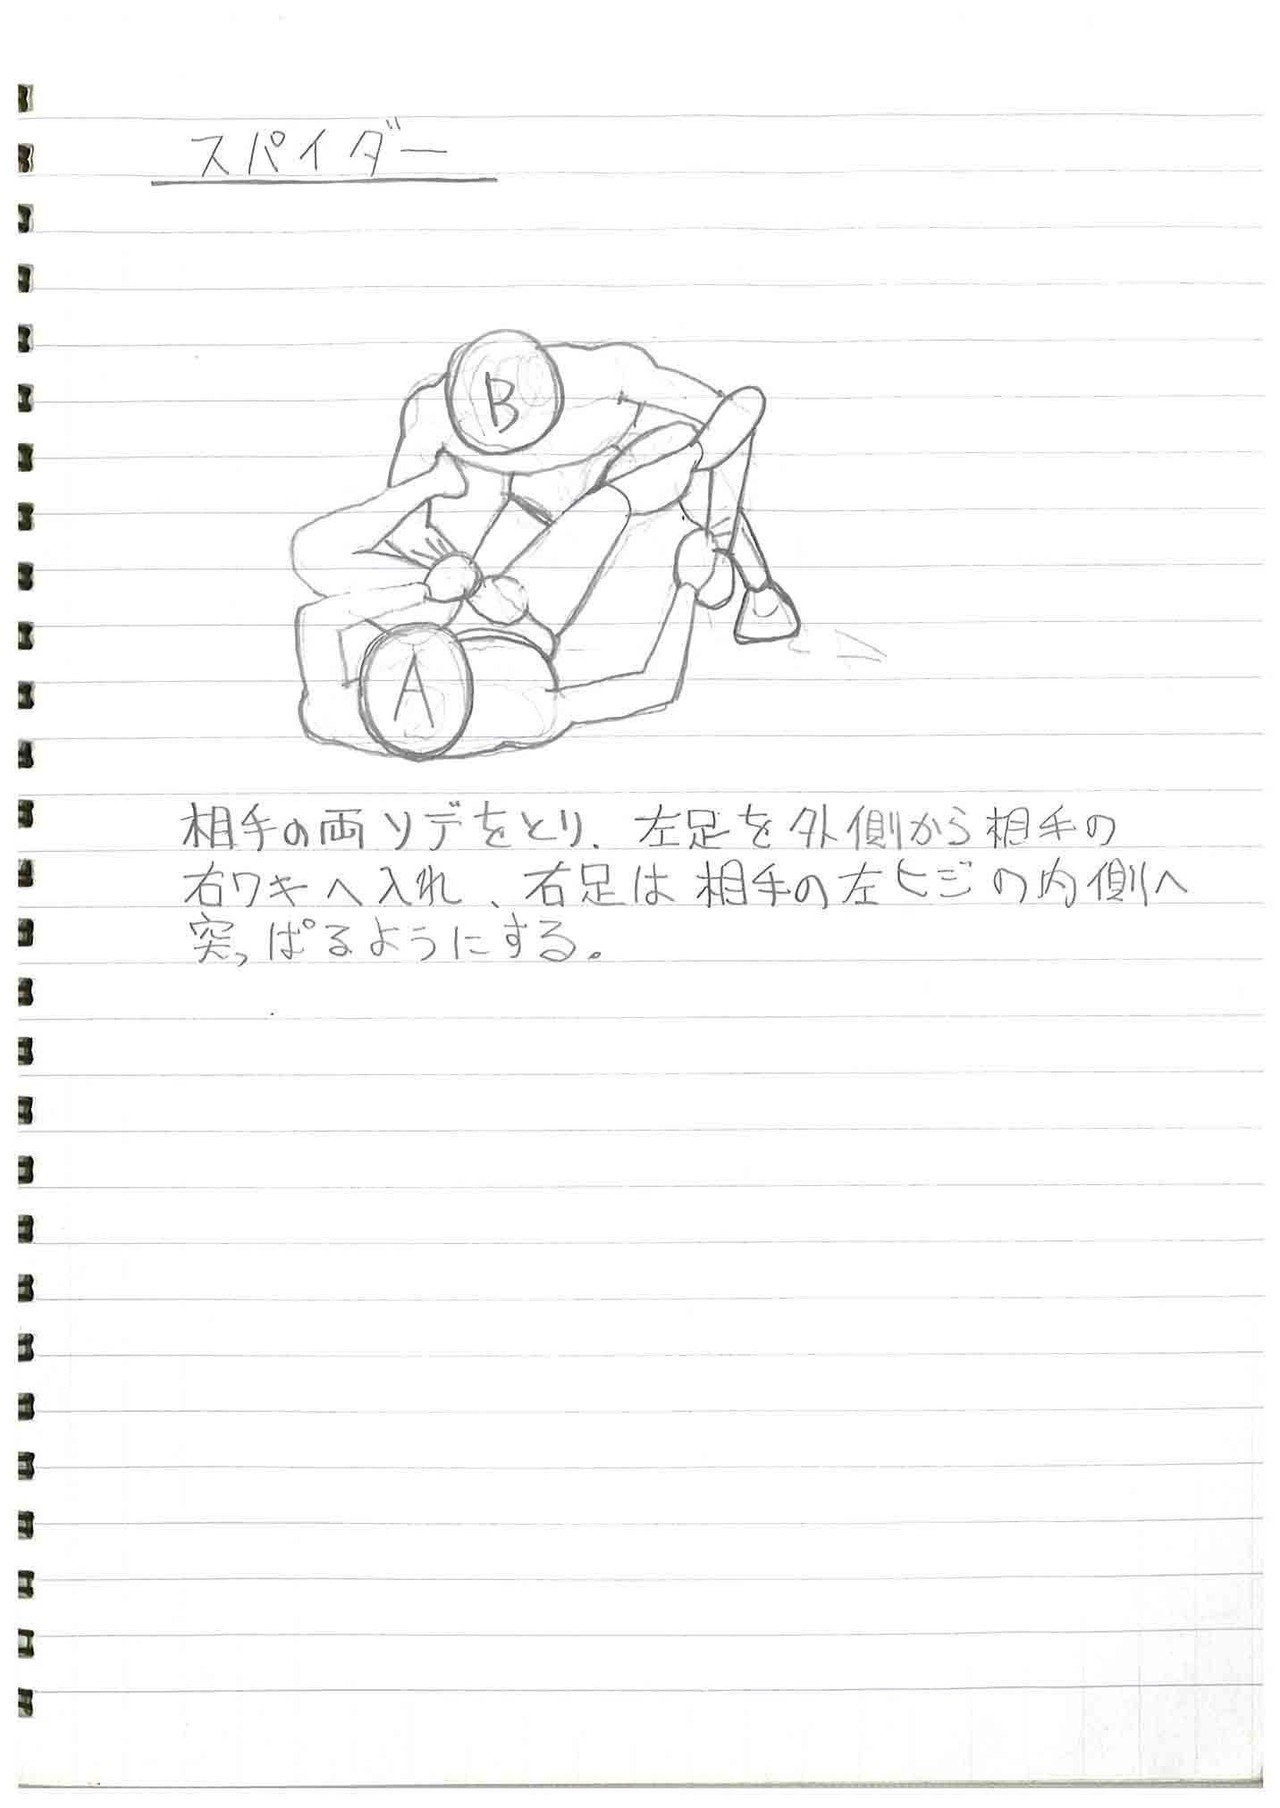 スパイダー
B
A
相手の両ソデをとり、左足を外側から相手の
右ワキへ入れ、右足は相手の左ヒジの内側へ
突っぱるようにする。